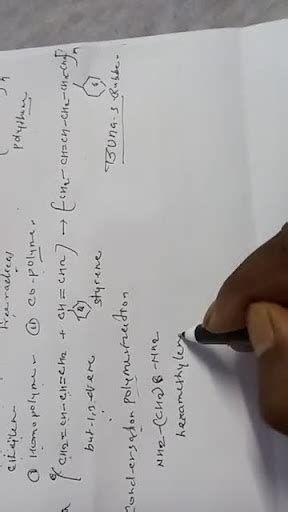 polythene
Free radical
① Homopolymer ② Co-polymer
{CH2=CH-CH=CH2 + CH=CH2} → {CH2-CH=CH-CH2-CH-CH2}n
but-1,3-ene styrene
BUNA-S Rubber
condensation polymerization
NH2-(CH2)6-NH2
hexamethylene